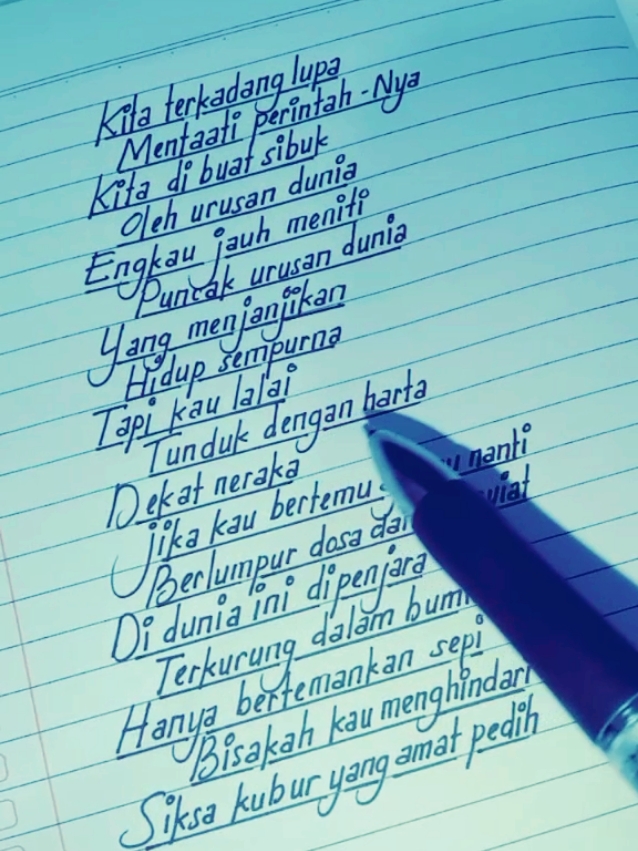 Kita terkadang lupa
Mentaati perintah-Nya
Kita di buat sibuk
Oleh urusan dunia
Engkau jauh meniti
Puncak urusan dunia
Yang menjanjikan
Hidup sempurna
Tapi kau lalai
Tunduk dengan harta
Dekat neraka
jika kau bertemu nanti
Berlumpur dosa
Di dunia ini dipenjara
Terkurung dalam bumi
Hanya bertemankan sepi
Bisakah kau menghindari
Siksa kubur yang amat pedih